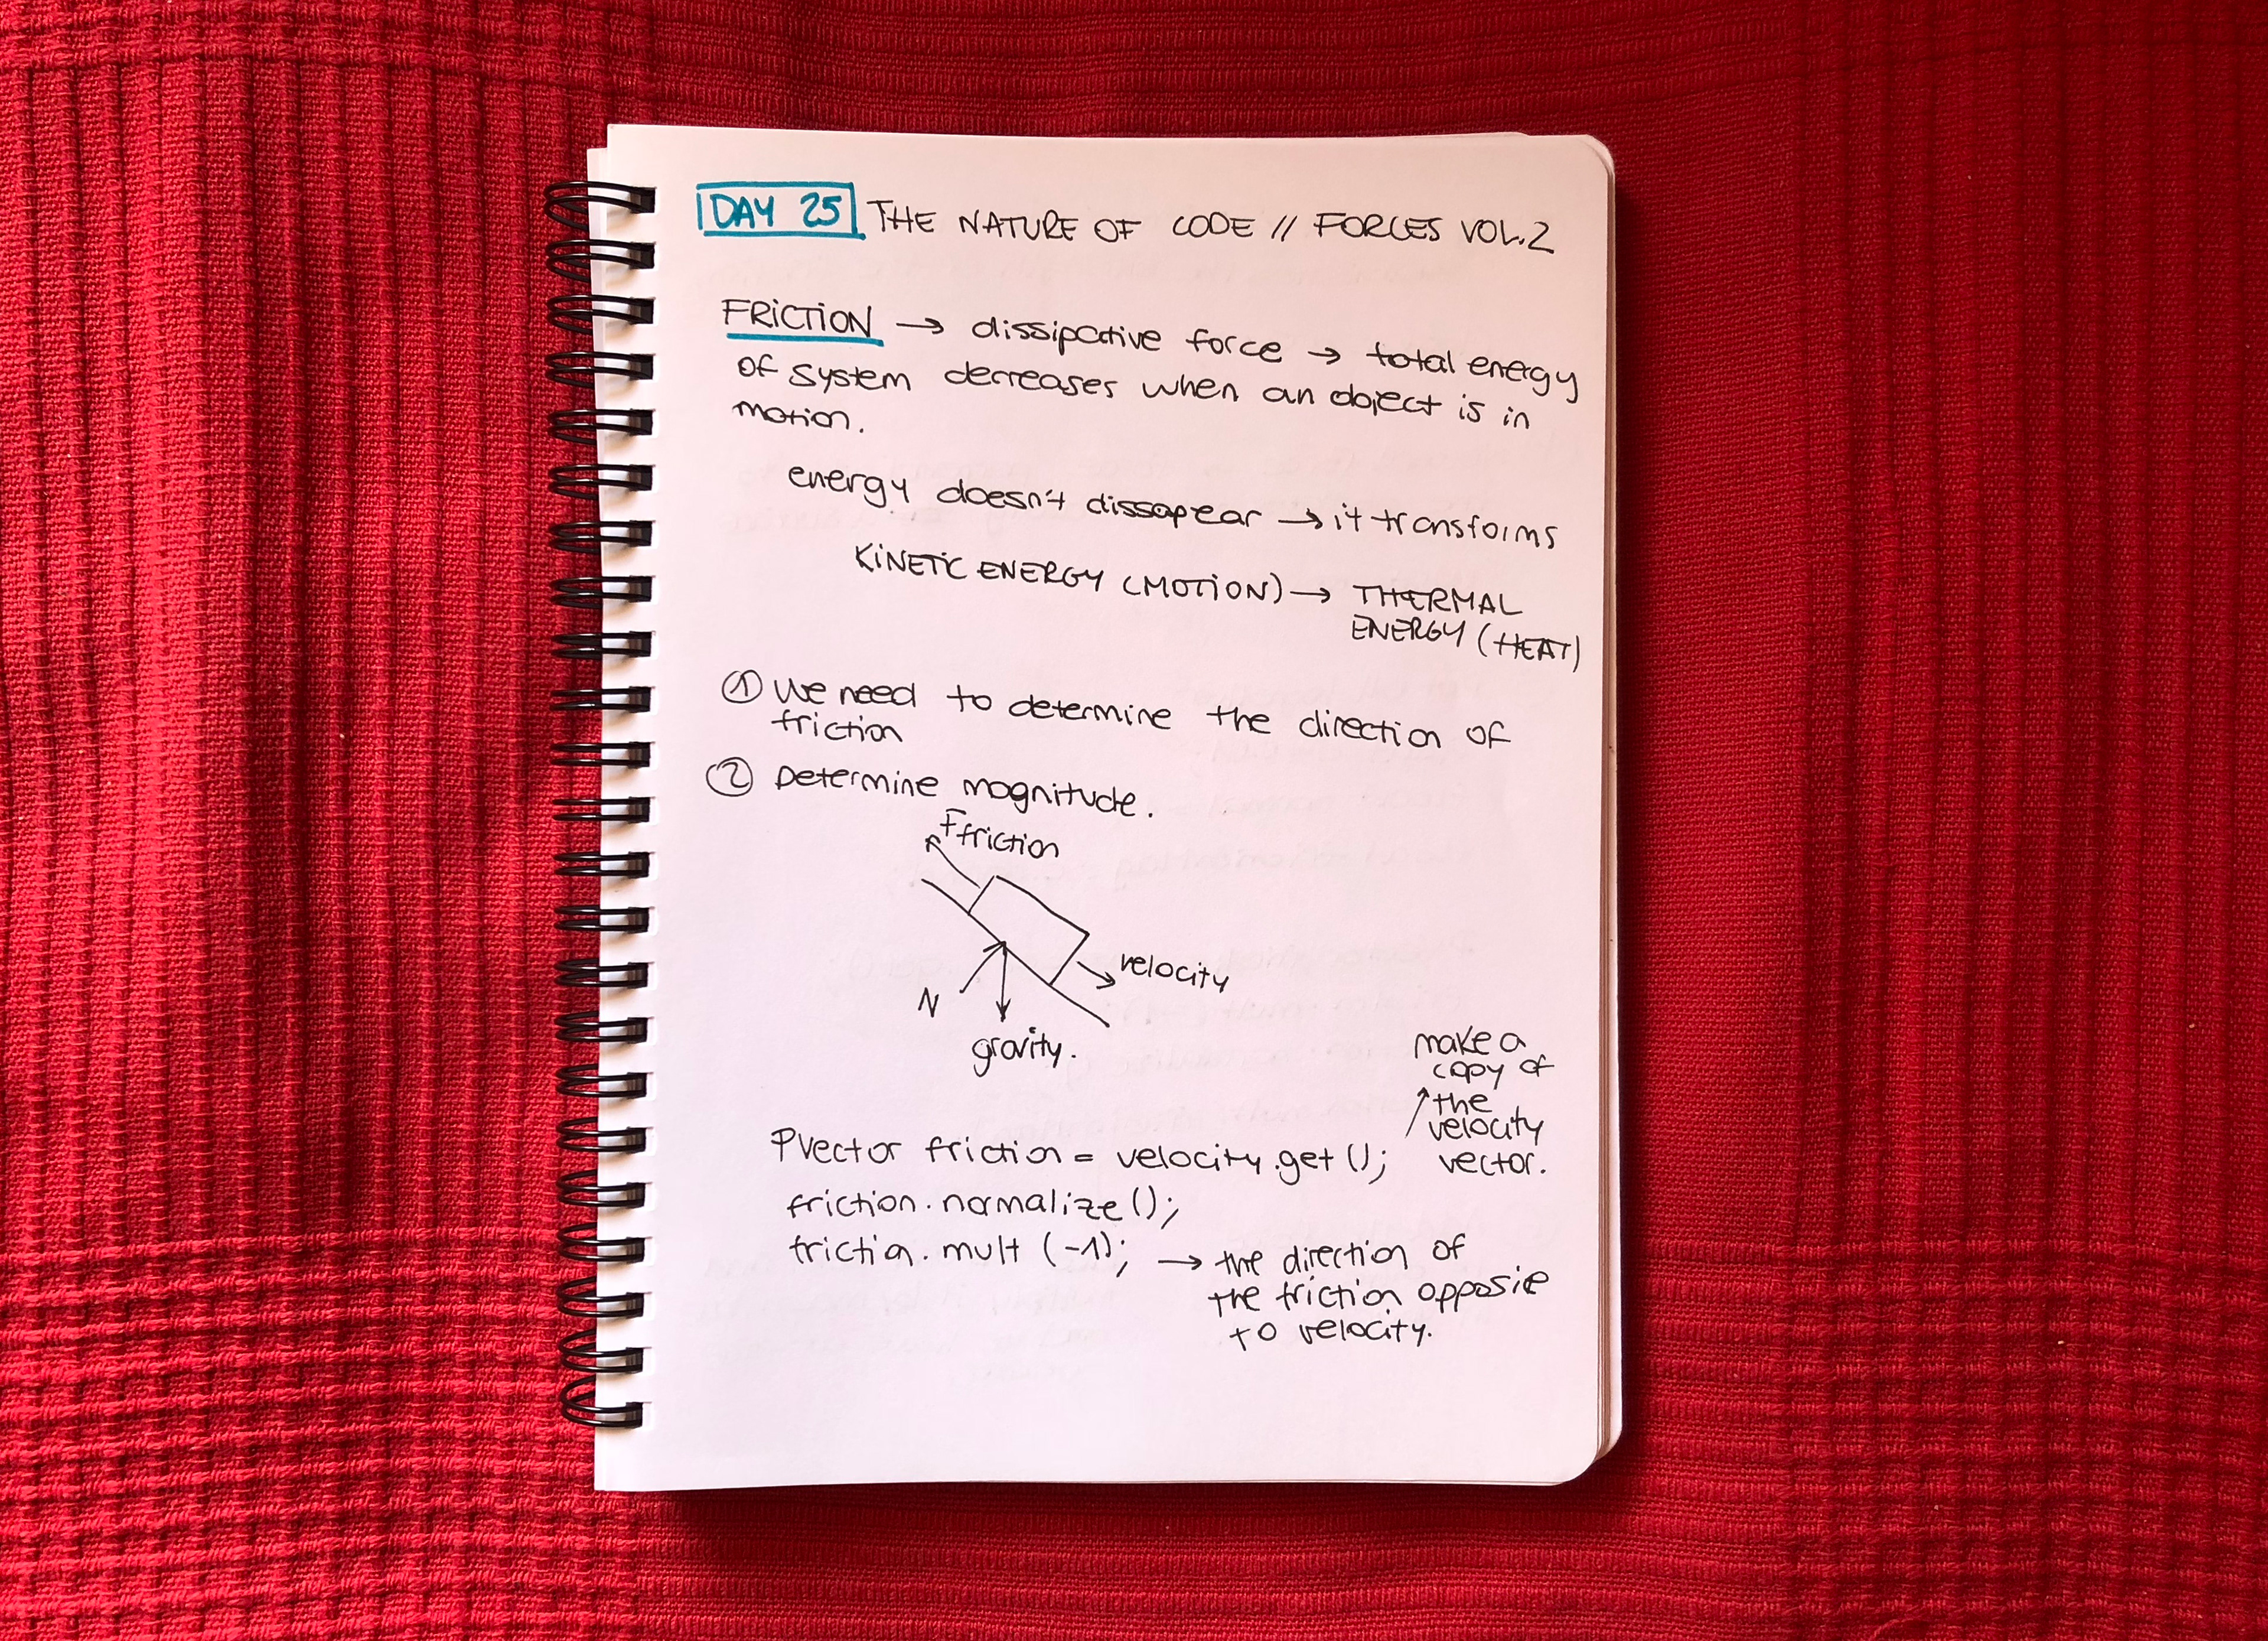 DAY 25 THE NATURE OF CODE // FORCES VOL.2
FRICTION → dissipative force → total energy
of system decreases when an object is in
motion.
energy doesn't dissapear → it transforms
KINETIC ENERGY (MOTION) → THERMAL
ENERGY (HEAT)
① We need to determine the direction of
friction
② Determine magnitude.
Ffriction
velocity
N
gravity.
make a
copy of
the
velocity
vector.
PVector friction = velocity.get();
friction.normalize();
friction.mult (-1); → the direction of
the friction opposite
to velocity.